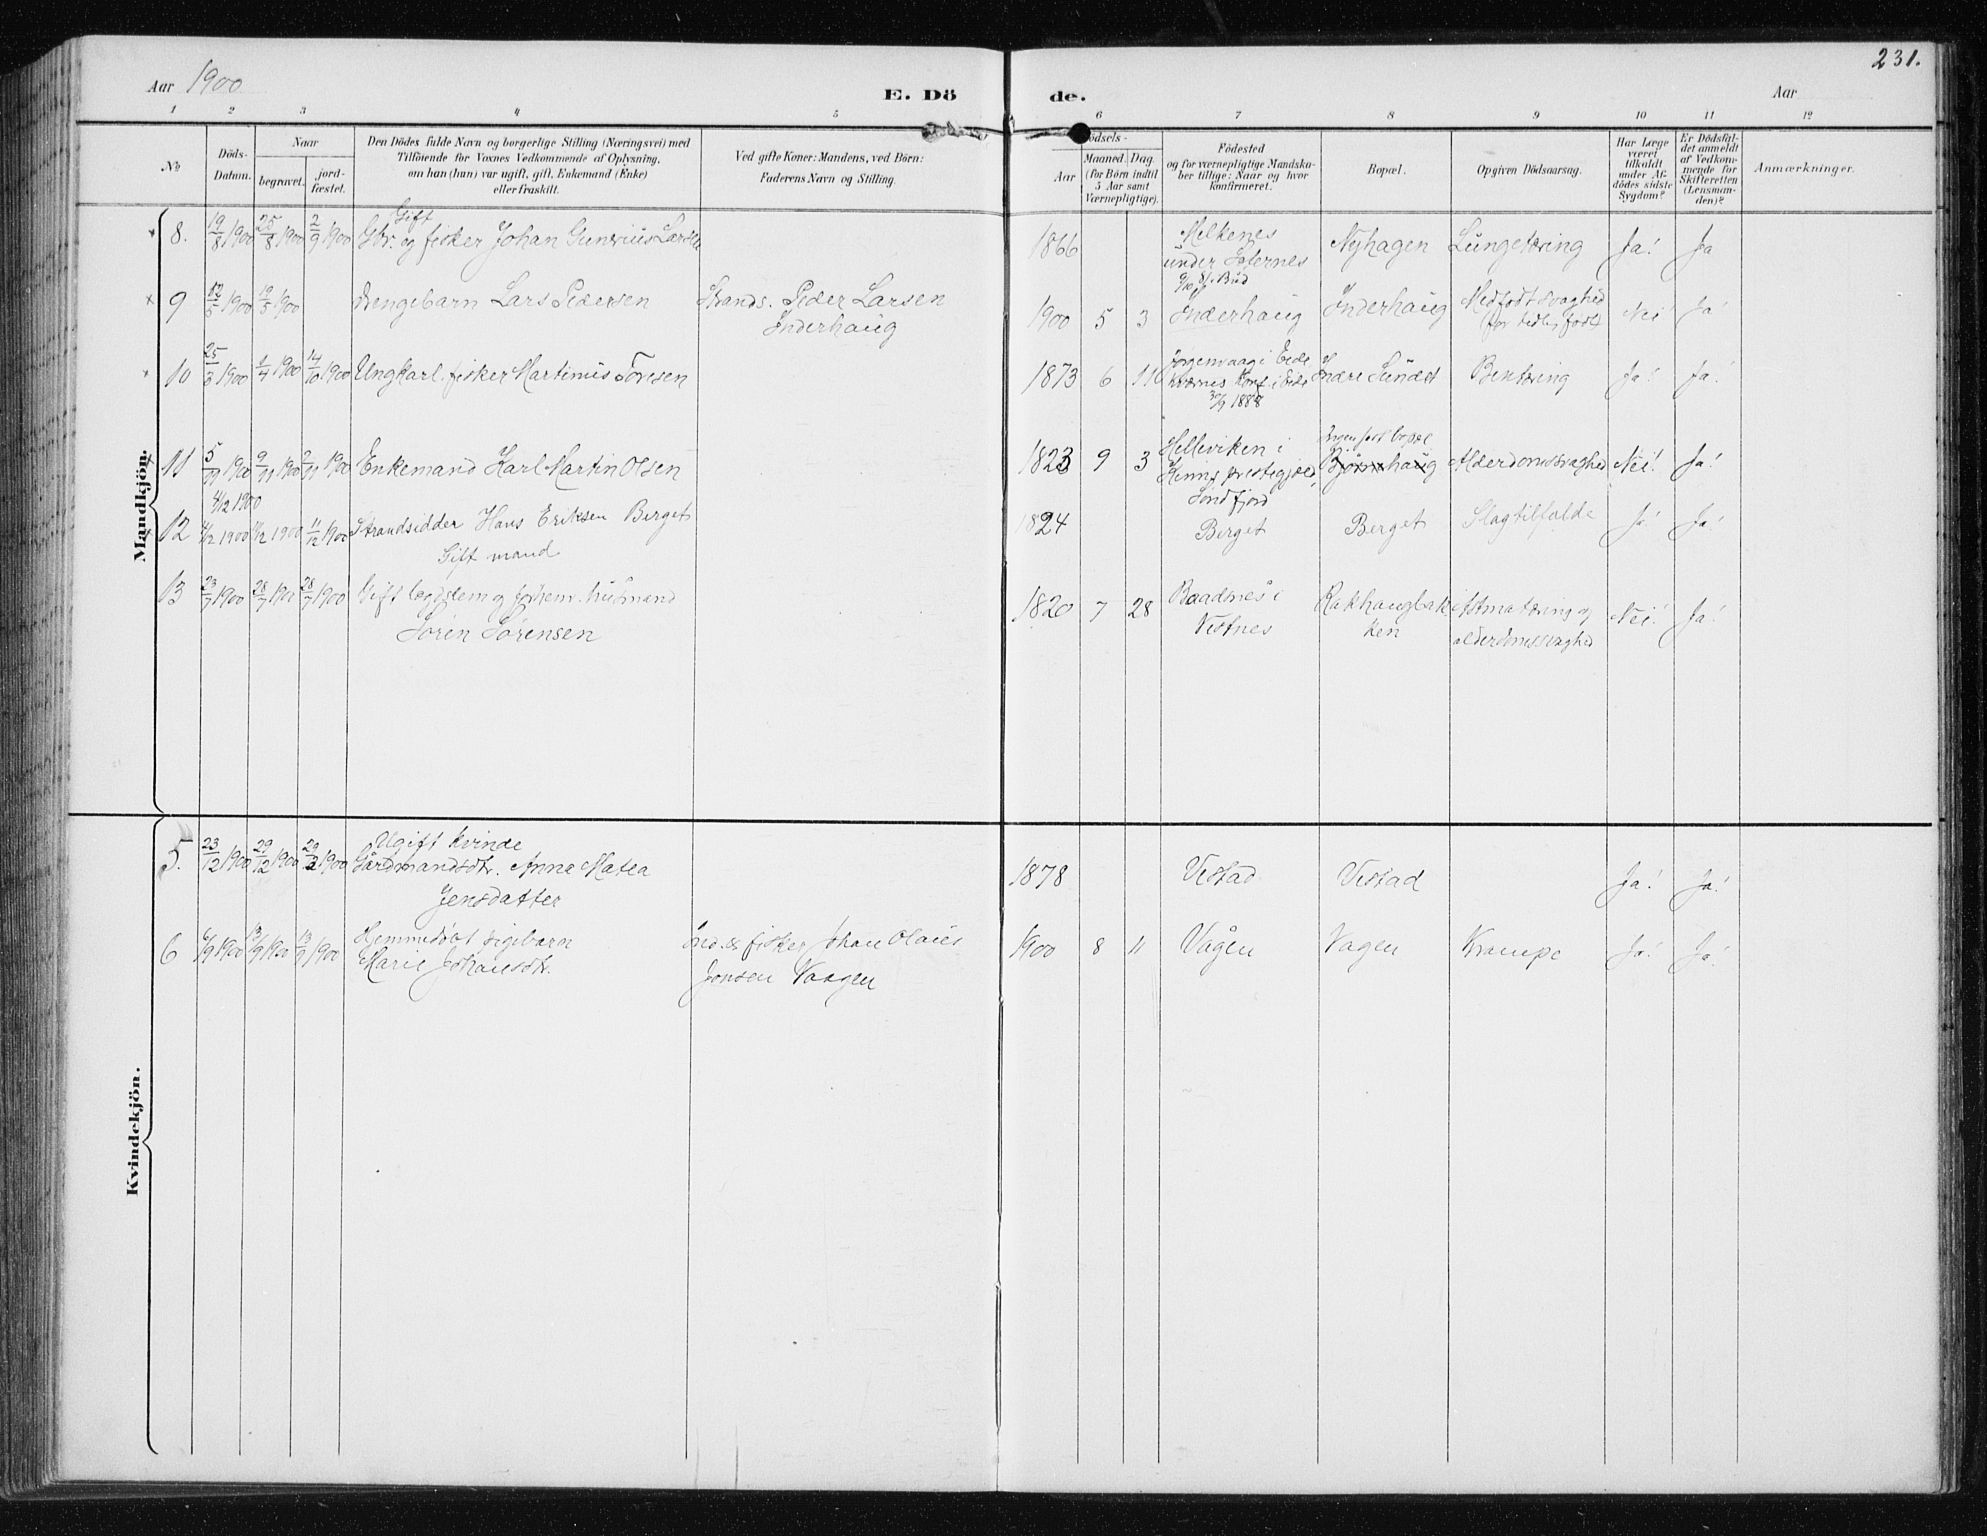 231.
Aar 1900
E. Dö de.
Aar
1 2 3 4 5 6 7 8 9 10 11 12
No
Döds-
Datum.
Naar
begravet.
jord-
fæstet.
Den Dödes fulde Navn og borgerlige Stilling (Næringsvei) med
Tilföiende for Voxnes Vedkommende af Oplysning,
om han (hun) var ugift, gift, Enkemand (Enke)
eller fraskilt.
Ved gifte Koner: Mandens, ved Börn:
Faderens Navn og Stilling.
Födsels-
Aar
Maaned. Dag.
(for Börn indtil
5 Aar samt
Værnepligtige).
Födested
og for værnepligtige Mandska-
ber tillige: Naar og hvor
konfirmeret.
Bopæl.
Opgiven Dödsaarsag.
Har Læge
været
tilkaldt
under Af-
dödes sidste
Sygdom?
Er Dödsfal-
det anmeldt
af Vedkom-
mende for
Skifteretten
(Lensman-
den)?
Anmærkninger.
Mandkjön.
8. 19/8 1900 25/8 1900 2/9 1900 Gift
Gbr. og fisker Johan Gunerius Larsen 1866 Melkenes
under Sternes
Bud Nyhagen Lungetæring Ja! Ja
9 12/5 1900 19/5 1900 Drengebarn Lars Pedersen Strands. Peder Larsen
Inderhaug 1900 5 3 Inderhaug Inderhaug Medfödt svaghed
(for tidlig födt) Nei Ja!
10 25/3 1900 1/4 1900 14/10 1900 Ungkarl. fisker Martinus Toresen 1873 6 11 Jörgenvaag i Eide
Kværnes Konf. i Eide
30/9 1888 Indre Sundet Bentæring Ja! Ja!
11 5/11 1900 9/11 1900 9/11 1900 Enkemand Karl Martin Olsen 1823 9 3 Helleviken i
Kinns prestegjeld,
Söndfjord Ingen fast bopæl
Björnehaug Alderdomssvaghed Nei! Ja!
12 4/12 1900
4/12 1900 11/12 1900 11/12 1900 Strandsidder Hans Eriksen Berget
Gift mand 1824 Berget Berget Slagtilfælde Ja! Ja!
13 23/7 1900 28/7 1900 28/7 1900 Gift lægdslem og forhenv. husmand
Sören Sörensen 1820 7 28 Baadnes i
Vestnes Rakhaugbak-
ken Astma tæring og
alderdomssvaghed Nei! Ja!
Kvindekjön.
5. 23/12 1900 29/12 1900 29/12 1900 Ugift kvinde
Gårdmandsdtr. Anna Matea
Jensdatter 1878 Vestad Vestad Ja! Ja!
6 6/9 1900 13/9 1900 13/9 1900 Hjemmedöbt pigebarn
Marie Johansdtr. Ind. & fisker Johan Olaus
Jonsen Vaagen 1900 8 11 Vågen Vagen Krampe Ja! Ja!